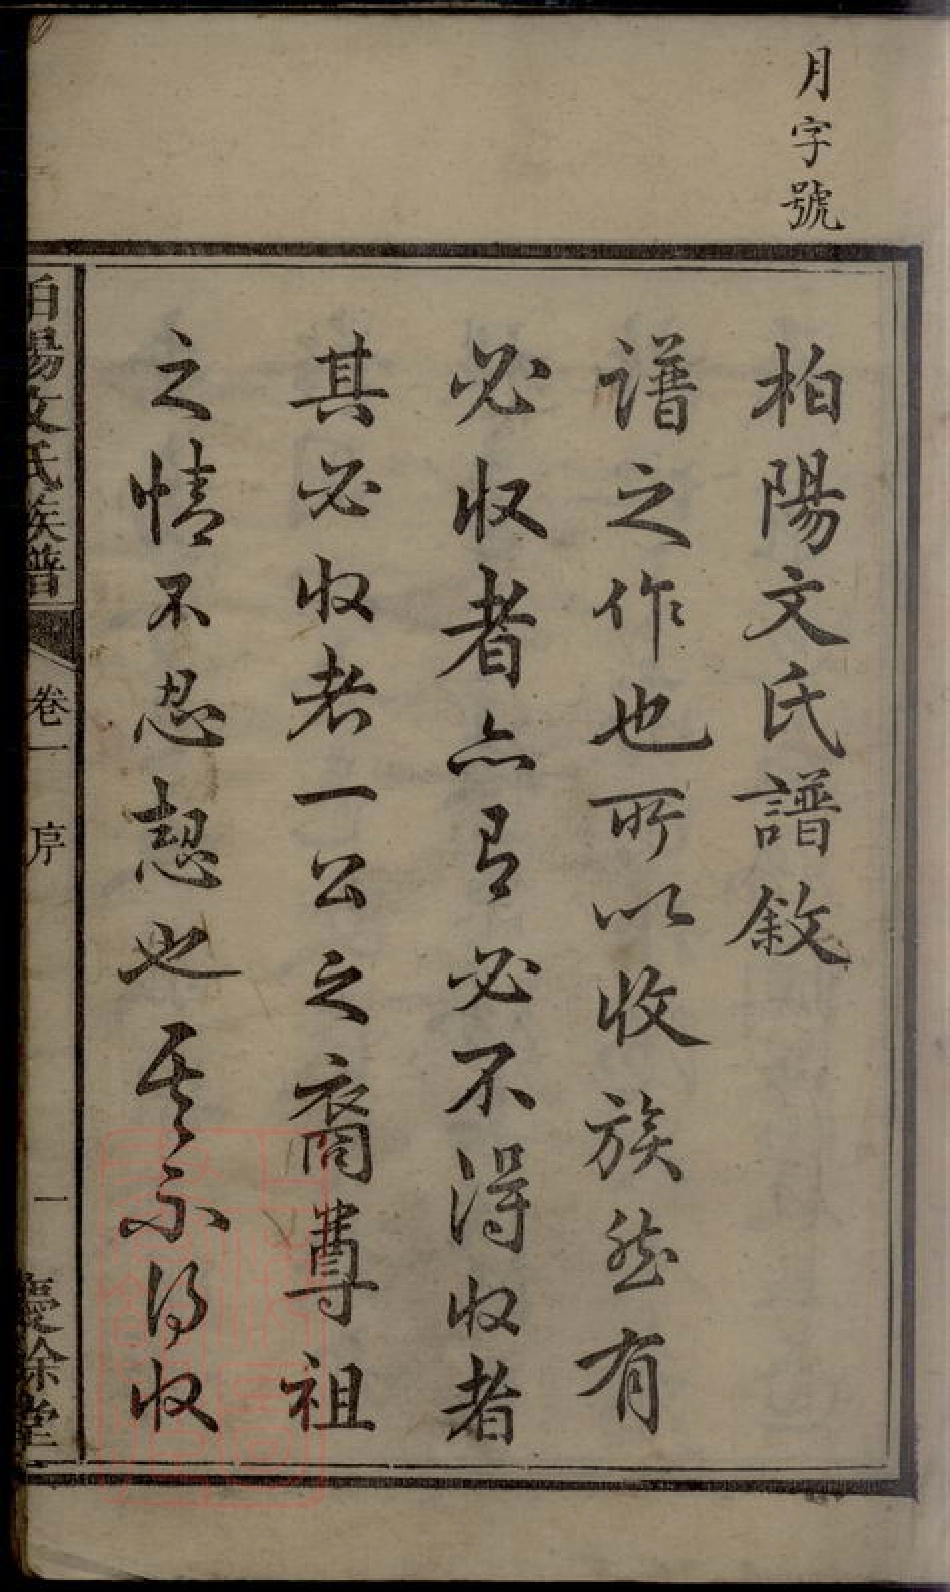 月字號
柏陽文氏譜敘
譜之作也所以收族然有
必收者亦有必不得收者
其必收者一公之裔尊祖
之情不忍恝也其不得收
柏陽文氏族譜 卷一 序 一 慶餘堂